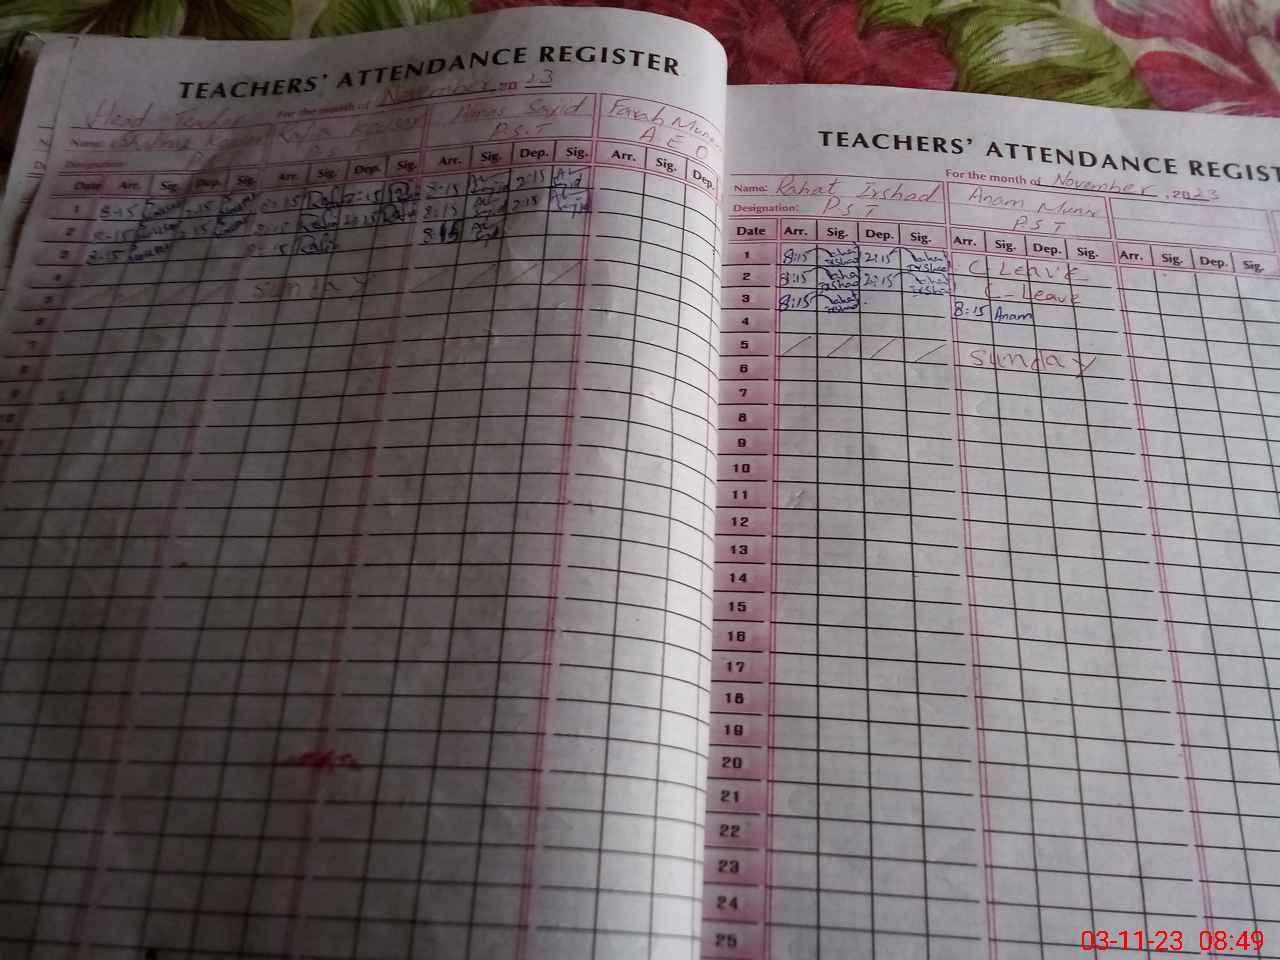 TEACHERS' ATTENDANCE REGISTER
For the month of November 2023
Head Teacher
Name: Shahnaz Kausar Rafia Kausar Almas Sajid Farah Munir
Designation: P.S.T P.S.T A.E.O
Date Arr. Sig. Dep. Sig. Arr. Sig. Dep. Sig. Arr. Sig. Dep. Sig. Arr. Sig. Dep.
1 8-15 2-15 8-15 2-15 8-15 2-15
2 8-15 2-15 8-15 2-15 8-15 2-15
3 8-15 8-15 Rafia 8-15
4
5 Sunday
6
7
8
9
10
TEACHERS' ATTENDANCE REGIST
For the month of November, 2023
Name: Rahat Irshad Anam Munir
Designation: P.S.T P.S.T
Date Arr. Sig. Dep. Sig. Arr. Sig. Dep. Sig. Arr. Sig. Dep. Sig.
1 8:15 Rahat Irshad 2:15 Rahat Irshad C Leave
2 8:15 Rahat Irshad 2:15 Rahat Irshad C-Leave
3 8:15 Rahat Irshad 8:15 Anam
4
5 Sunday
6
7
8
9
10
11
12
13
14
15
16
17
18
19
20
21
22
23
24
25
03-11-23 08:49